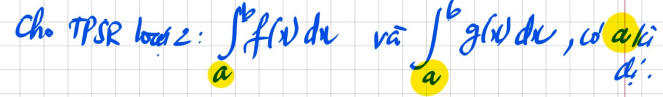 Cho TPSR loại 2: ∫_a^b f(x) dx và ∫_a^b g(x) dx, có a kì
dị.